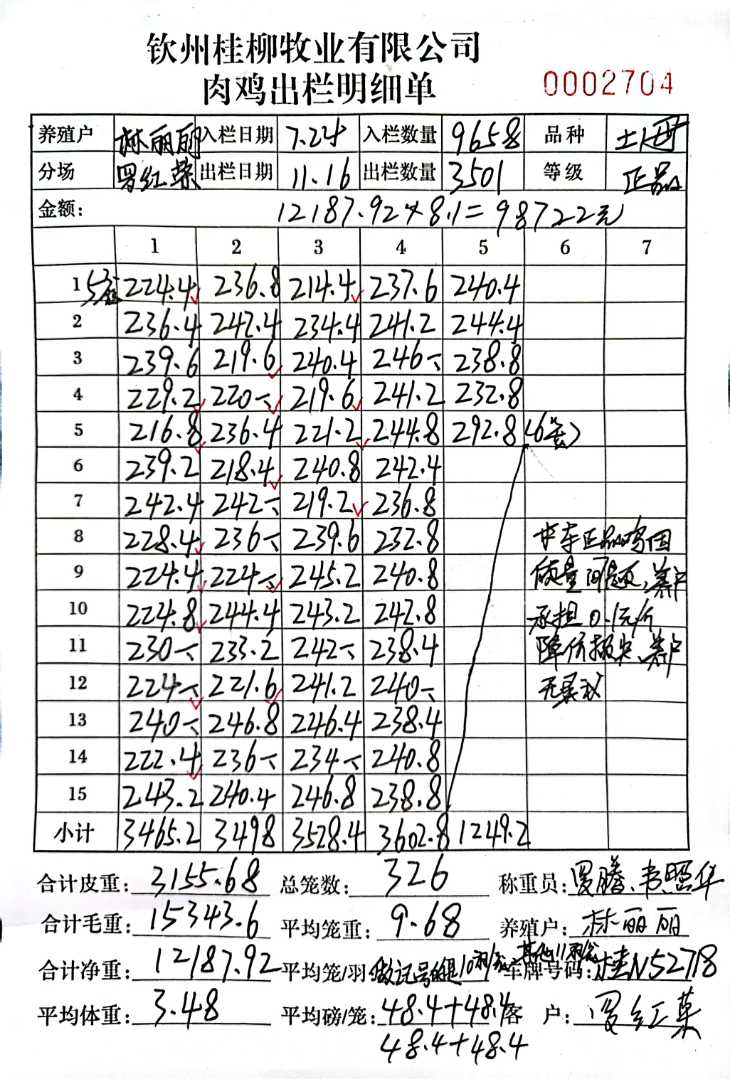 钦州桂柳牧业有限公司
肉鸡出栏明细单 0002704
养殖户 林丽丽 入栏日期 7.24 入栏数量 9658 品种 土人母
分场 罗红荣 出栏日期 11.16 出栏数量 3501 等级 正品
金额: 12187.92×8.1=98722元
1 2 3 4 5 6 7
1 5只/笼 224.4 236.8 214.4 237.6 240.4
2 236.4 242.4 234.4 241.2 244.4
3 239.6 219.6 240.4 246- 238.8
4 229.2 220- 219.6 241.2 232.8
5 216.8 236.4 221.2 244.8 292.8 (6笼)
6 239.2 218.4 240.8 242.4
7 242.4 242- 219.2 236.8
8 228.4 236- 239.6 232.8 本车正品鸡因
9 224.4 224- 245.2 240.8 质量问题,养户
10 224.8 244.4 243.2 242.8 承担0.1元/斤
11 230- 233.2 242- 238.4 降价损失,养户
12 224- 221.6 241.2 240- 无异议
13 240- 246.8 246.4 238.4
14 222.4 236- 234- 240.8
15 243.2 240.4 246.8 238.8
小计 3465.2 3498 3528.4 3602.8 1249.2
合计皮重: 3155.68 总笼数: 326 称重员: 罗腾、韦照华
合计毛重: 15343.6 平均笼重: 9.68 养殖户: 林丽丽
合计净重: 12187.92 平均笼/羽: 做记号的是10只/笼 其他11只/笼 车牌号码: 桂N52718
平均体重: 3.48 平均磅/笼: 48.4+48.4 客 户: 罗红荣
48.4+48.4